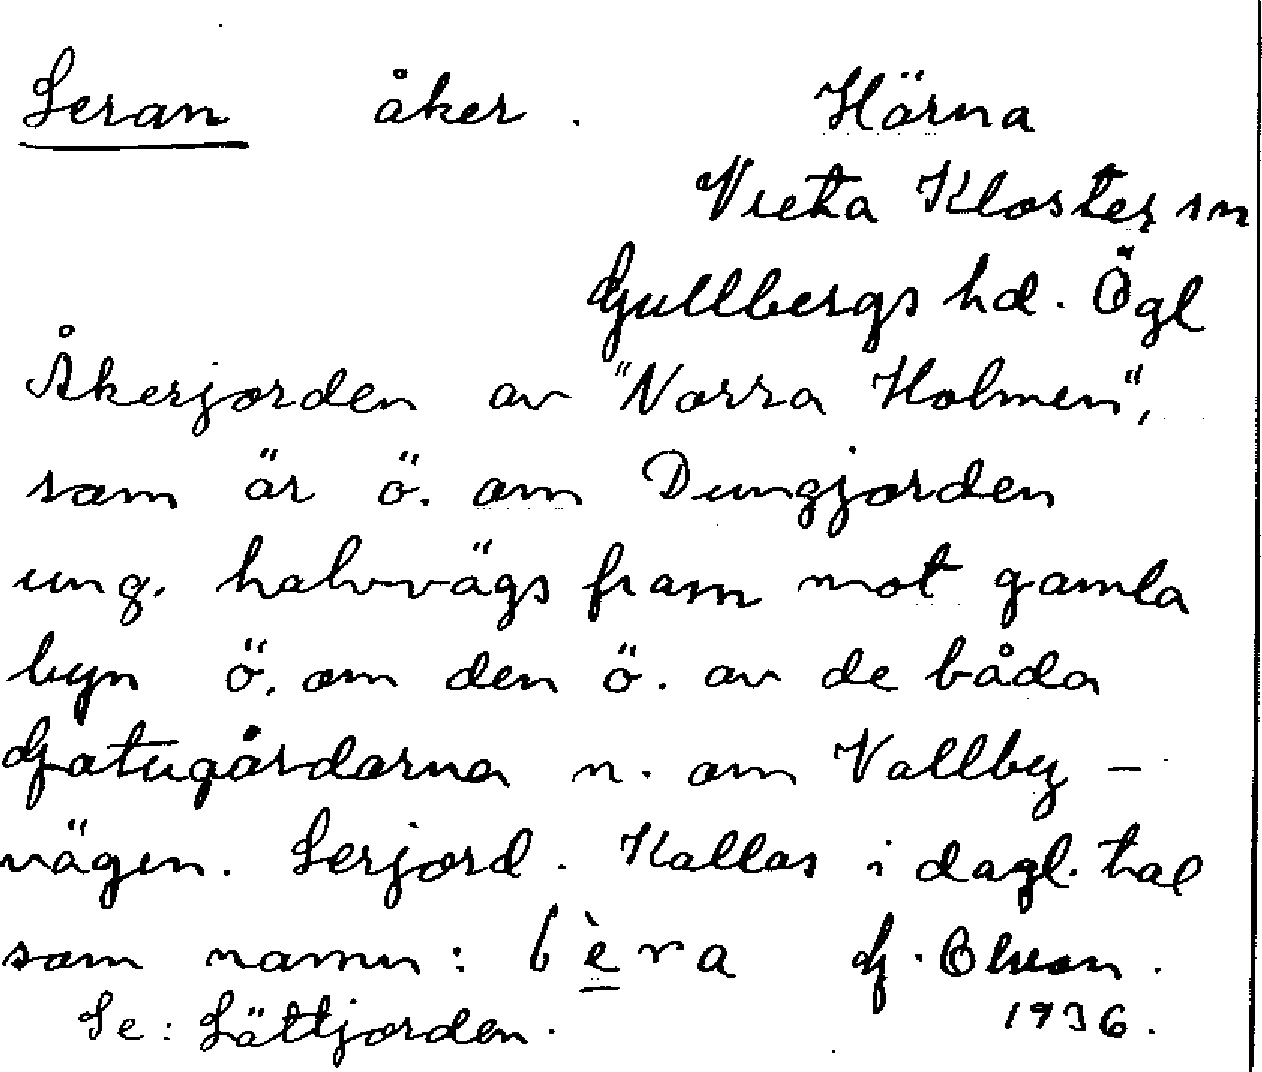 Leran åker. Härna
Vreta Kloster sn
Gullbergs hd. Ögl
Åkerjorden av "Norra Holmen",
som är ö. om Dungjorden
ung. halvvägs fram mot gamla
byn ö. om den ö. av de båda
Gatugårdarna n. om Vallby-
vägen. Lerjord. Kallas i dagl. tal
som namn: lèra G. Olsson.
Se: Lättjorden. 1936.